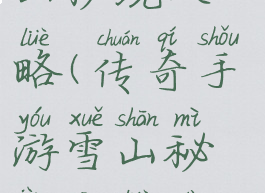 lüè chuán qí shǒu
略(传奇手
yóu xuě shān mì
游雪山秘